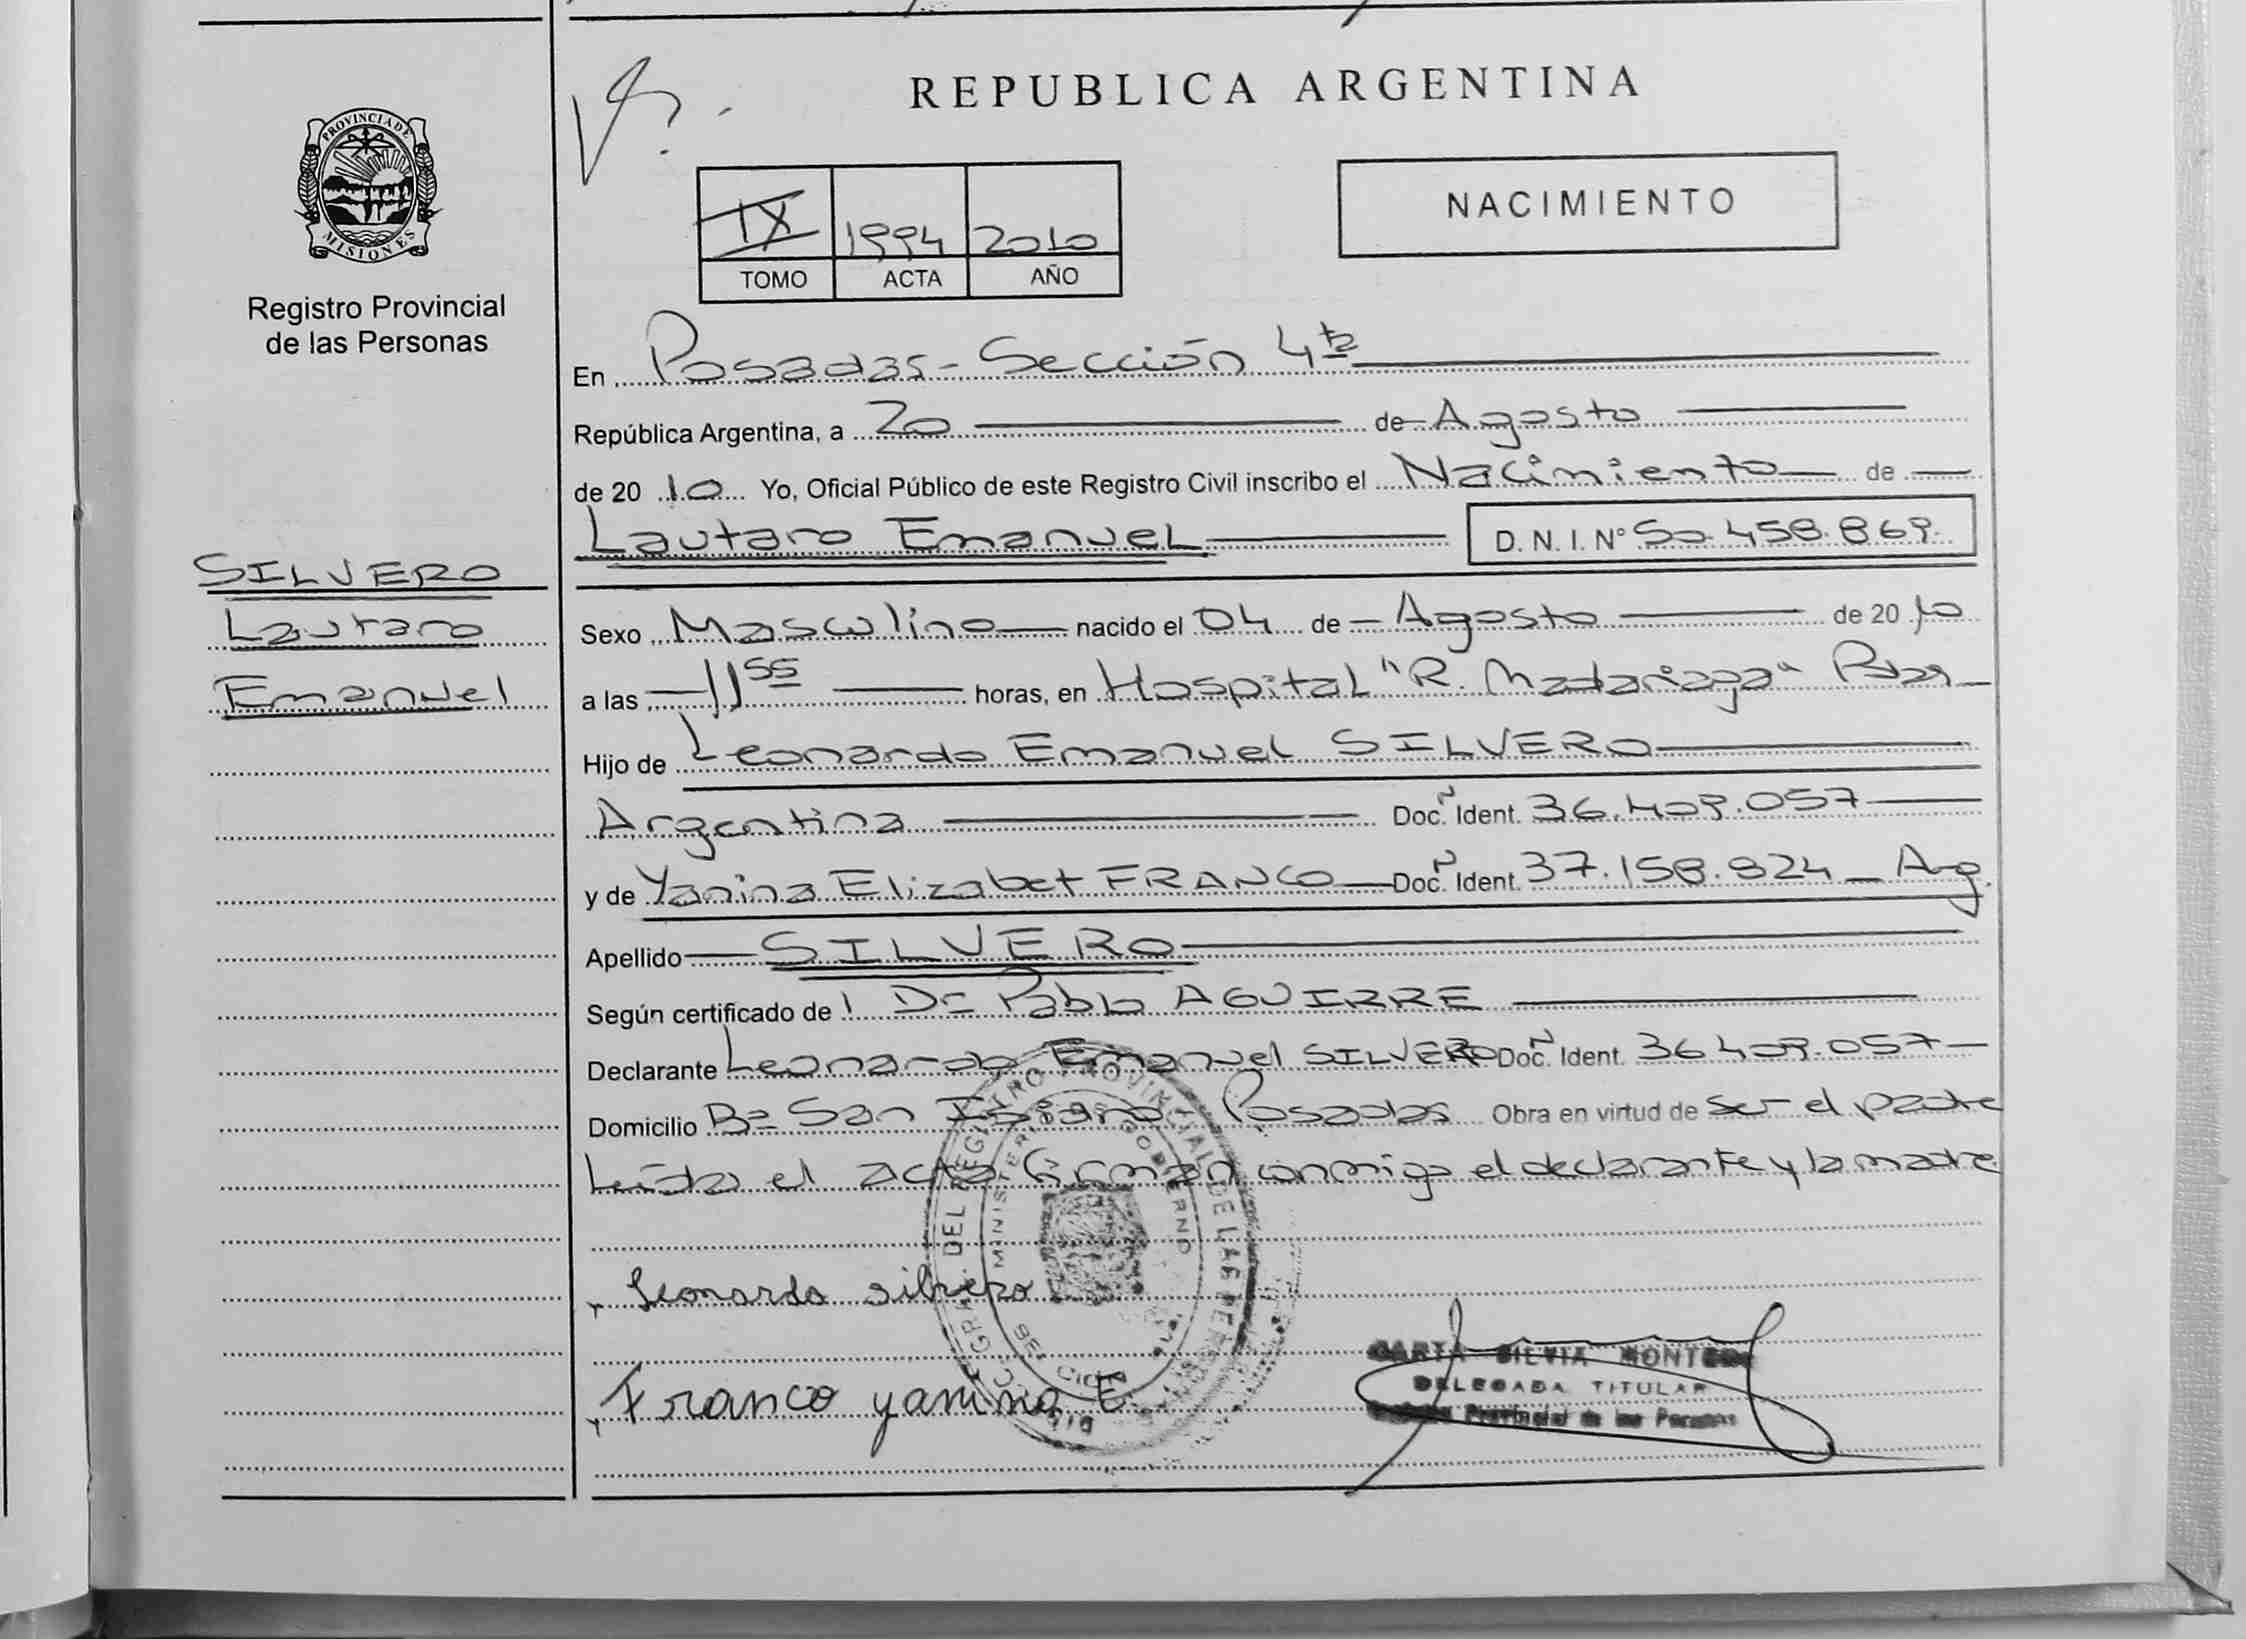 REPUBLICA ARGENTINA
PROVINCIA DE
MISIONES
Registro Provincial
de las Personas
IX 1994 2010
TOMO ACTA AÑO
NACIMIENTO
En Posadas - Sección 4ta
República Argentina, a 20 de Agosto
de 2010 Yo, Oficial Público de este Registro Civil inscribo el Nacimiento de
Lautaro Emanuel D. N. I. N° 50.458.869.
SILVERO
Lautaro
Emanuel
Sexo Masculino nacido el 04 de Agosto de 2010
a las 11 55 horas, en Hospital "R. Madariaga" Pdas
Hijo de Leonardo Emanuel SILVERO
Argentina Doc. N Ident. 36.409.057
y de Yanina Elizabet FRANCO Doc. N Ident. 37.158.824 Arg.
Apellido SILVERO
Según certificado de Dr Pablo AGUIRRE
Declarante Leonardo Emanuel SILVERO Doc. N Ident. 36.409.057
Domicilio Bº San Isidro Posadas Obra en virtud de ser el padre
Leída el acta firman conmigo el declarante y la madre
Leonardo silvero
Franco yanina E.
SILVIA
DELEGADA TITULAR
Provincial de las Personas